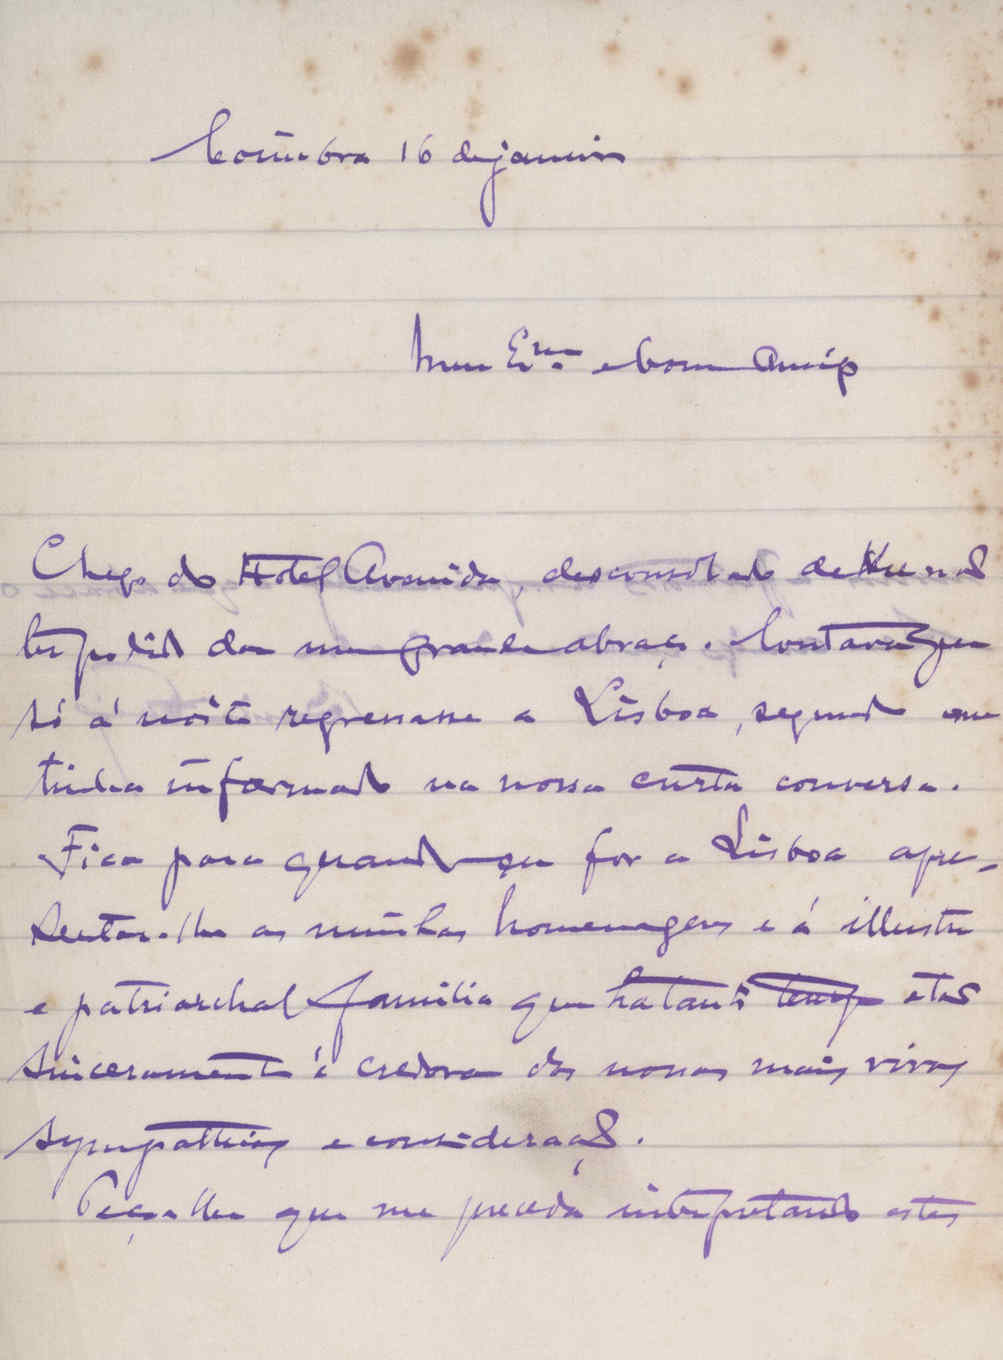 Coimbra 16 de janeiro
Meu Exmo. e bom Amigo
Chego do Hotel Avenida, desconsolado de lhe não
ter podido dar um grande abraço. Contava que
só á noite regressasse a Lisboa, segundo me
tinha informado na nossa curta conversa.
Fica para quando eu for a Lisboa apre-
sentar-lhe as minhas homenagens e á illustre
e patriarchal familia que ha tanto tempo e tão
sinceramente é credora das nossas mais vivas
sympathias e consideração.
Peço-lhe que me preceda interpretando estes